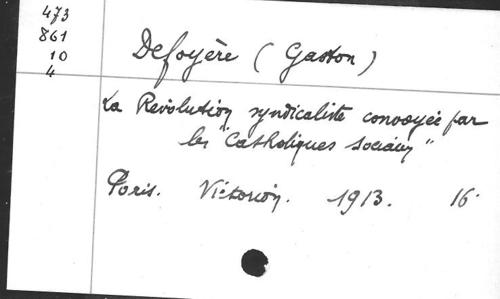 473
861
10
4
Defoyère (Gaston)
La Révolution syndicaliste convoyée par
les "Catholiques sociaux"
Paris. Victorion. 1913. 16°